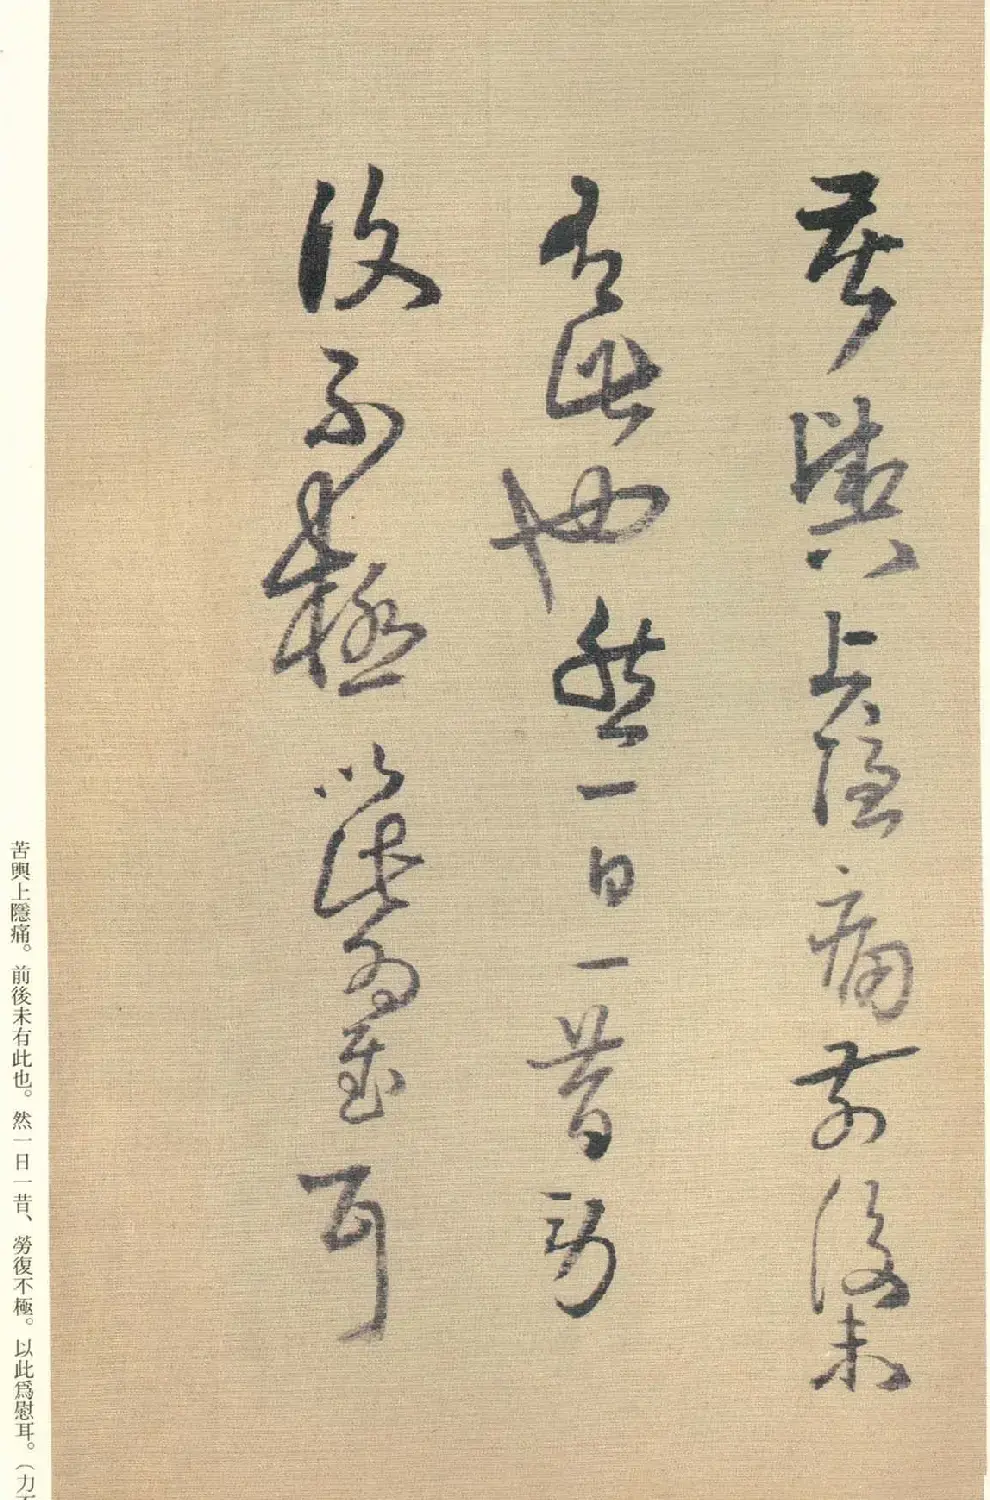 苦輿上隱痛前後未
有此也然一日一昔勞
復不極以此為慰耳
苦輿上隱痛。前後未有此也。然一日一昔、勞復不極。以此爲慰耳。（力